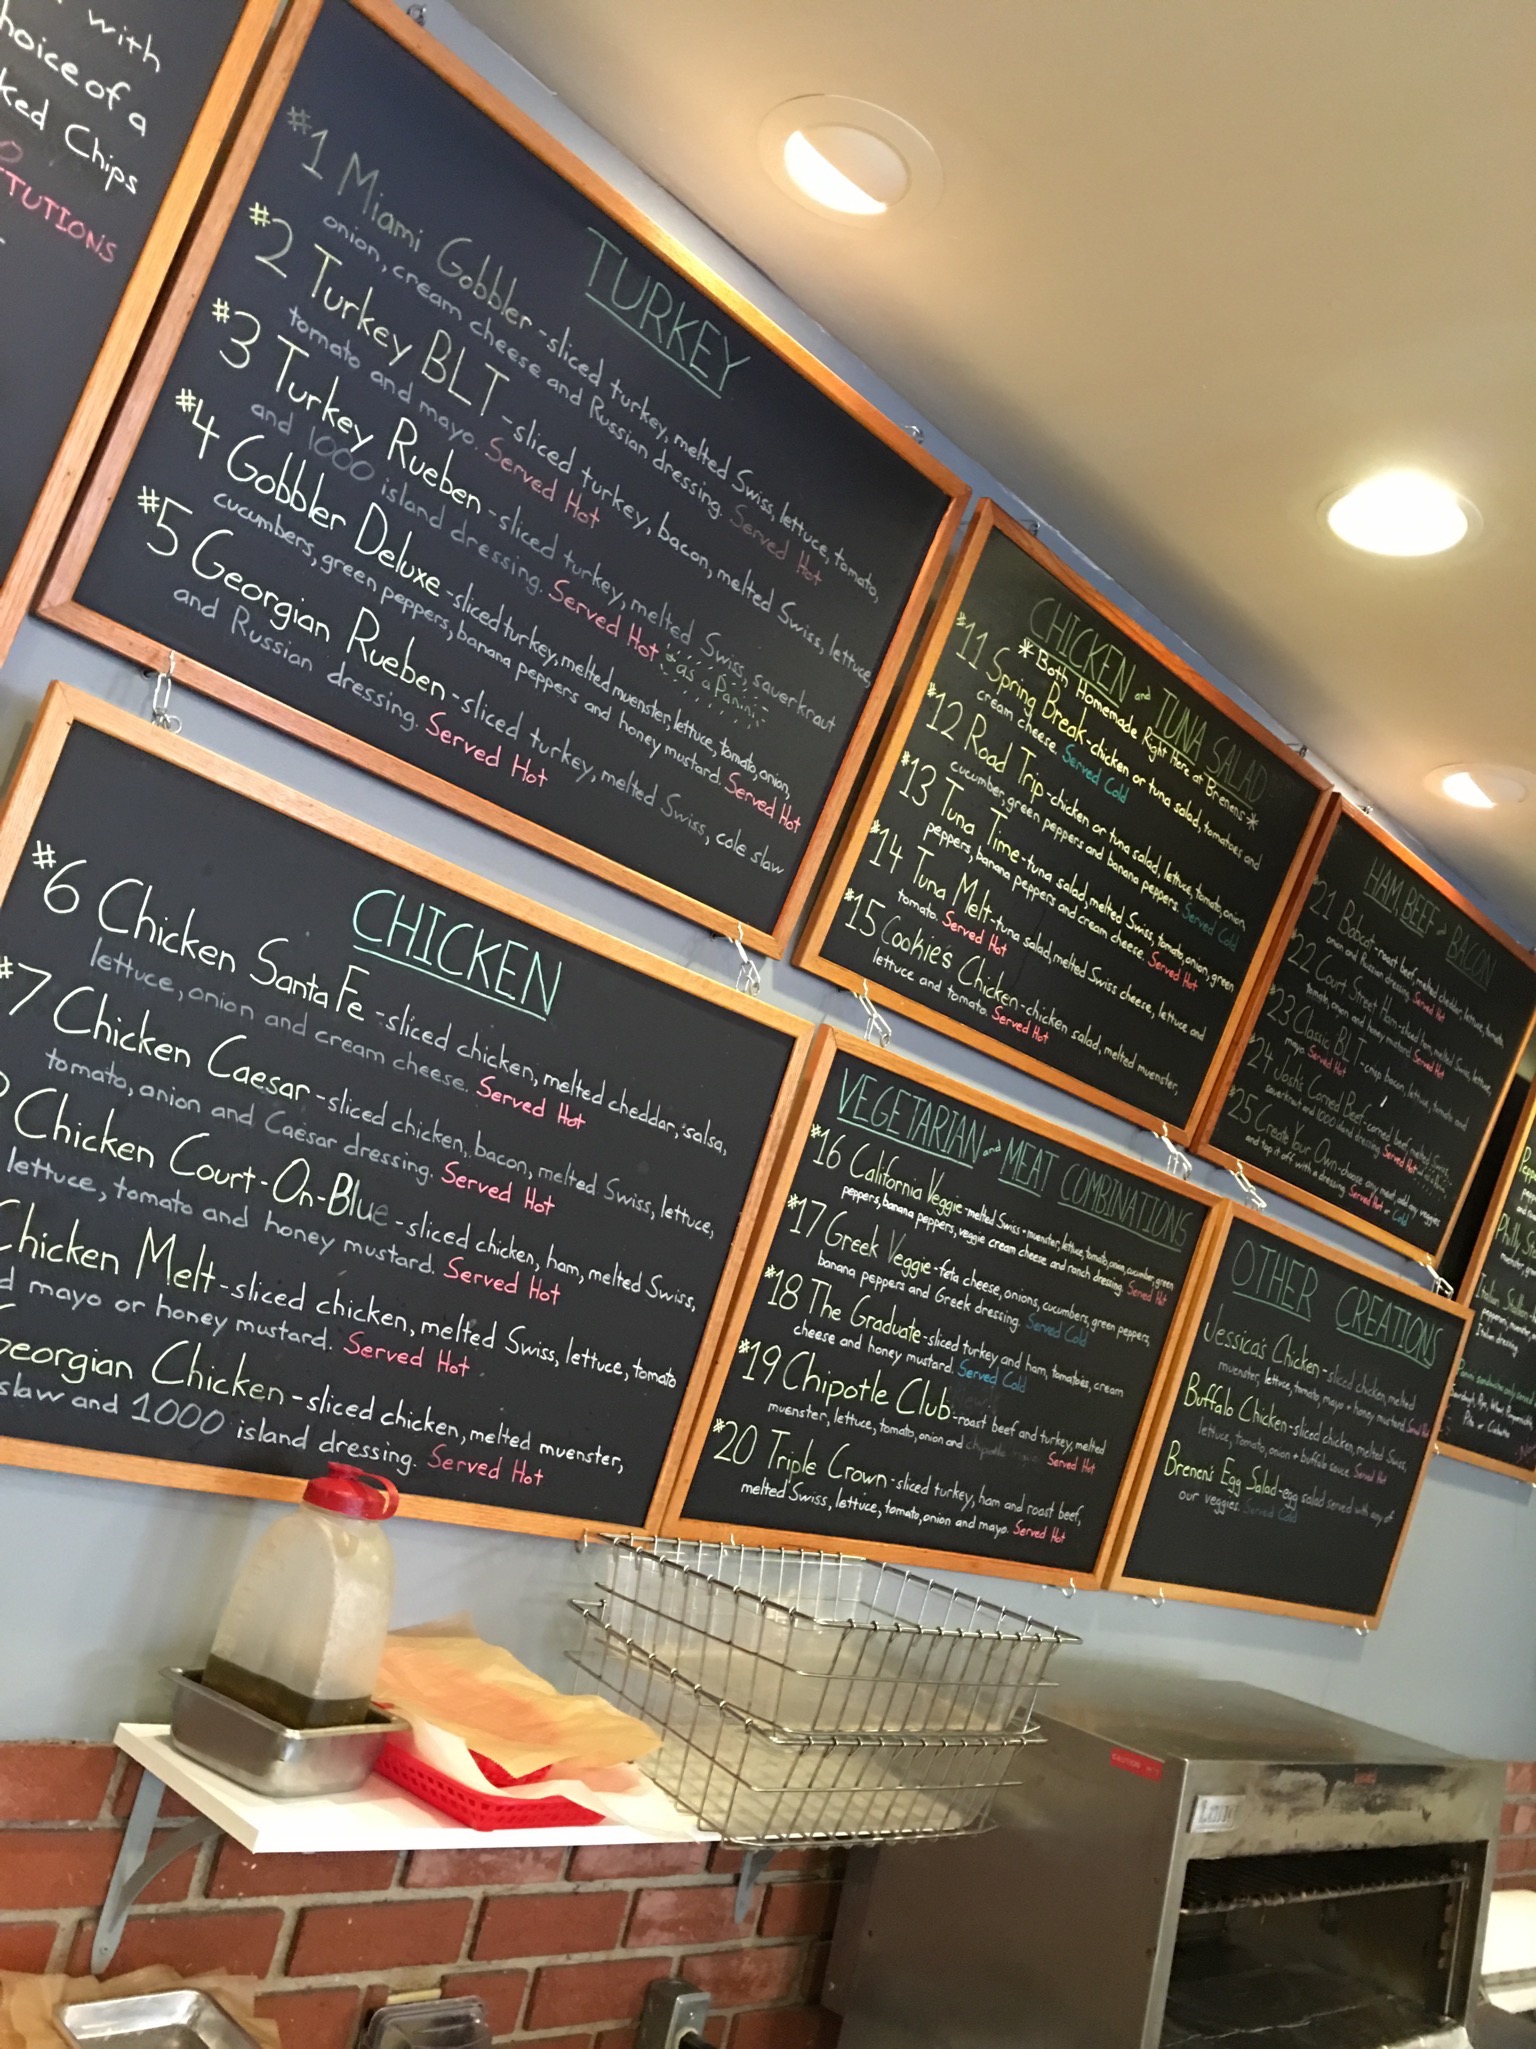 with
hoice of a
ked Chips
TUTIONS
TURKEY
#1 Miami Gobbler - sliced turkey, melted Swiss, lettuce, tomato,
onion, cream cheese and Russian dressing. Served Hot
#2 Turkey BLT - sliced turkey, bacon, melted Swiss, lettuce,
tomato and mayo. Served Hot
#3 Turkey Rueben - sliced turkey, melted Swiss, sauerkraut
and 1000 island dressing. Served Hot *as a Panini
#4 Gobbler Deluxe - sliced turkey, melted muenster, lettuce, tomato, onion,
cucumbers, green peppers, banana peppers and honey mustard. Served Hot
#5 Georgian Rueben - sliced turkey, melted Swiss, cole slaw
and Russian dressing. Served Hot
CHICKEN
#6 Chicken Santa Fe - sliced chicken, melted cheddar, salsa,
lettuce, onion and cream cheese. Served Hot
#7 Chicken Caesar - sliced chicken, bacon, melted Swiss, lettuce,
tomato, onion and Caesar dressing. Served Hot
Chicken Court-On-Blue - sliced chicken, ham, melted Swiss,
lettuce, tomato and honey mustard. Served Hot
Chicken Melt - sliced chicken, melted Swiss, lettuce, tomato
d mayo or honey mustard. Served Hot
Georgian Chicken - sliced chicken, melted muenster,
slaw and 1000 island dressing. Served Hot
CHICKEN and TUNA SALAD
*Both Homemade Right Here at Brenens*
#11 Spring Break - chicken or tuna salad, tomatoes and
cream cheese. Served Cold
#12 Road Trip - chicken or tuna salad, lettuce, tomato, onion
cucumber, green peppers and banana peppers. Served Cold
#13 Tuna Time - tuna salad, melted Swiss, tomato, onion, green
peppers, banana peppers and cream cheese. Served Hot
#14 Tuna Melt - tuna salad, melted Swiss cheese, lettuce and
tomato. Served Hot
#15 Cookie's Chicken - chicken salad, melted muenster,
lettuce and tomato. Served Hot
VEGETARIAN and MEAT COMBINATIONS
#16 California Veggie - melted Swiss + muenster, lettuce, tomato, onion, cucumber, green
peppers, banana peppers, veggie cream cheese and ranch dressing. Served Hot
#17 Greek Veggie - feta cheese, onions, cucumbers, green peppers,
banana peppers and Greek dressing. Served Cold
#18 The Graduate - sliced turkey and ham, tomatoes, cream
cheese and honey mustard. Served Cold
#19 Chipotle Club - roast beef and turkey, melted
muenster, lettuce, tomato, onion and chipotle Served Hot
#20 Triple Crown - sliced turkey, ham and roast beef,
melted Swiss, lettuce, tomato, onion and mayo. Served Hot
HAM, BEEF & BACON
#21 Bobcat - roast beef, melted cheddar, lettuce, tomato,
onion and Russian dressing. Served Hot
#22 Court Street Ham - sliced ham, melted Swiss, lettuce,
tomato, onion and honey mustard. Served Hot
#23 Classic BLT - crisp bacon, lettuce, tomato and
mayo. Served Hot
#24 Josh's Corned Beef - corned beef, melted Swiss,
sauerkraut and 1000 island dressing. Served Hot
#25 Create Your Own - choose any meat, add any veggies
and top it off with a dressing. Served Hot or Cold
OTHER CREATIONS
Jessica's Chicken - sliced chicken, melted
muenster, lettuce, tomato, mayo + honey mustard. Served Hot
Buffalo Chicken - sliced chicken, melted Swiss,
lettuce, tomato, onion + buffalo sauce. Served Hot
Brenen's Egg Salad - egg salad served with any of
our veggies. Served Cold
Philly
Italian
Italian dressing.
Pita or Ciabatta
CAUTION HOT